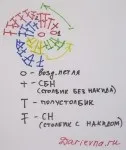 о - возд. петля
+ - СБН
(СТОЛБИК БЕЗ НАКИДА)
Т - полустолбик
Ŧ - СН
(СТОЛБИК
С НАКИДОМ)
Darievna.ru